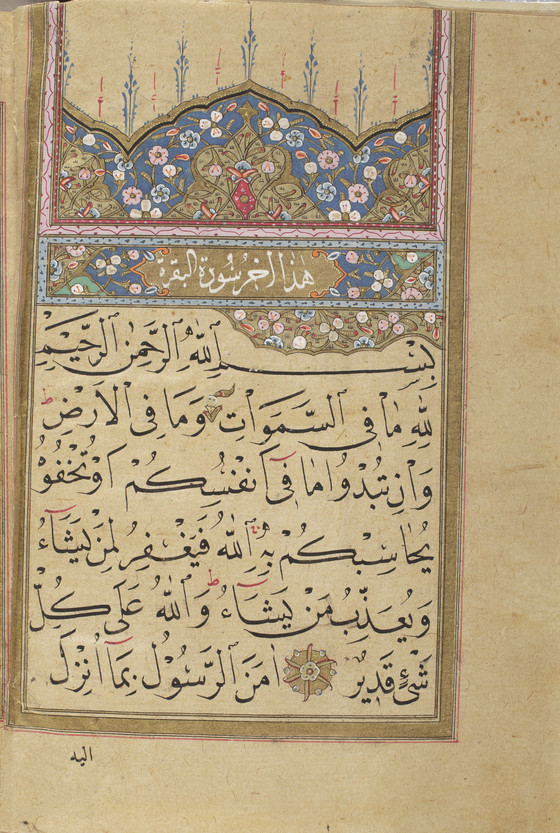 هذا اخر سورة البقره
بِسْمِ اللّٰهِ الرَّحْمٰنِ الرَّحِيْمِ
لِلّٰهِ مَا فِى السَّمَوَاتِ وَمَا فِى الْاَرْضِ ط
وَاِنْ تُبْدُوا مَا فِىٓ اَنْفُسِكُمْ اَوْ تُخْفُوْهُ
يُحَاسِبْكُمْ بِهِ اللّٰهُ فَيَغْفِرُ لِمَنْ يَشَٓاءُ
وَيُعَذِّبُ مَنْ يَشَٓاءُ ط وَاللّٰهُ عَلَى كُلِّ
شَىْءٍ قَدِيْرٌ اٰمَنَ الرَّسُوْلُ بِمَٓا اُنْزِلَ
اليه